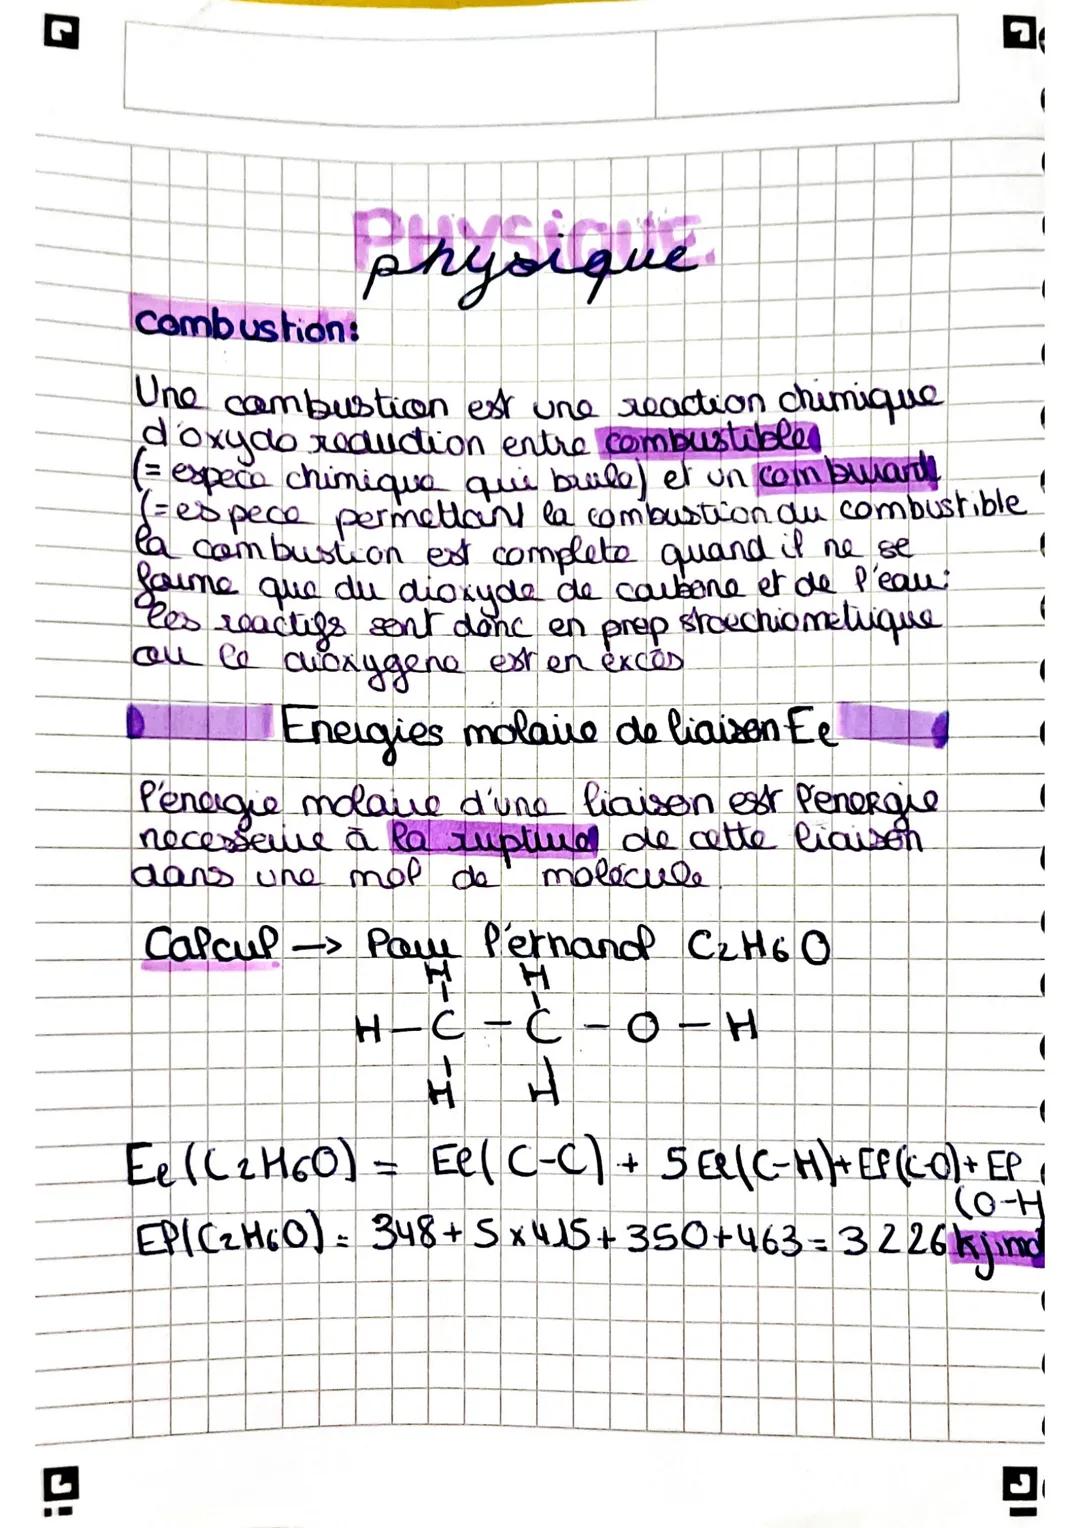 PHYSIQUE.
physique
combustion:
Une combustion est une reaction chimique
d'oxydo reduction entre combustible
(= espece chimique qui brule) et un comburard
(= espece permettant la combustion du combustible
la combustion est complete quand il ne se
forme que du dioxyde de carbone et de l'eau:
les reactifs sont donc en prop stoechiometrique
ou le dioxygene est en excès
Energies molaire de liaison El
l'energie molaire d'une liaison est l'energie
necessaire à la rupture de cette liaison
dans une mol de molécule.
Calcul → Pour l'ethanol C2H6O
H H
H-C-C-O-H
H H
El(C2H6O) = El(C-C) + 5El(C-H)+El(C-O)+El
(O-H
El(C2H6O) = 348+5x415+350+463=3226 kj.mol